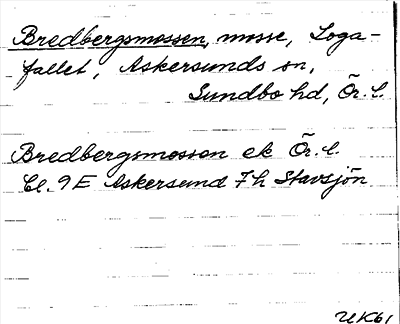 Bredbergsmossen, mosse, Loga-
fallet, Askersunds sn,
Sundbo hd, Ör. l.
Bredbergsmossen ek Ör. l.
Bl. 9E Askersund 7h Stavsjön
UK61